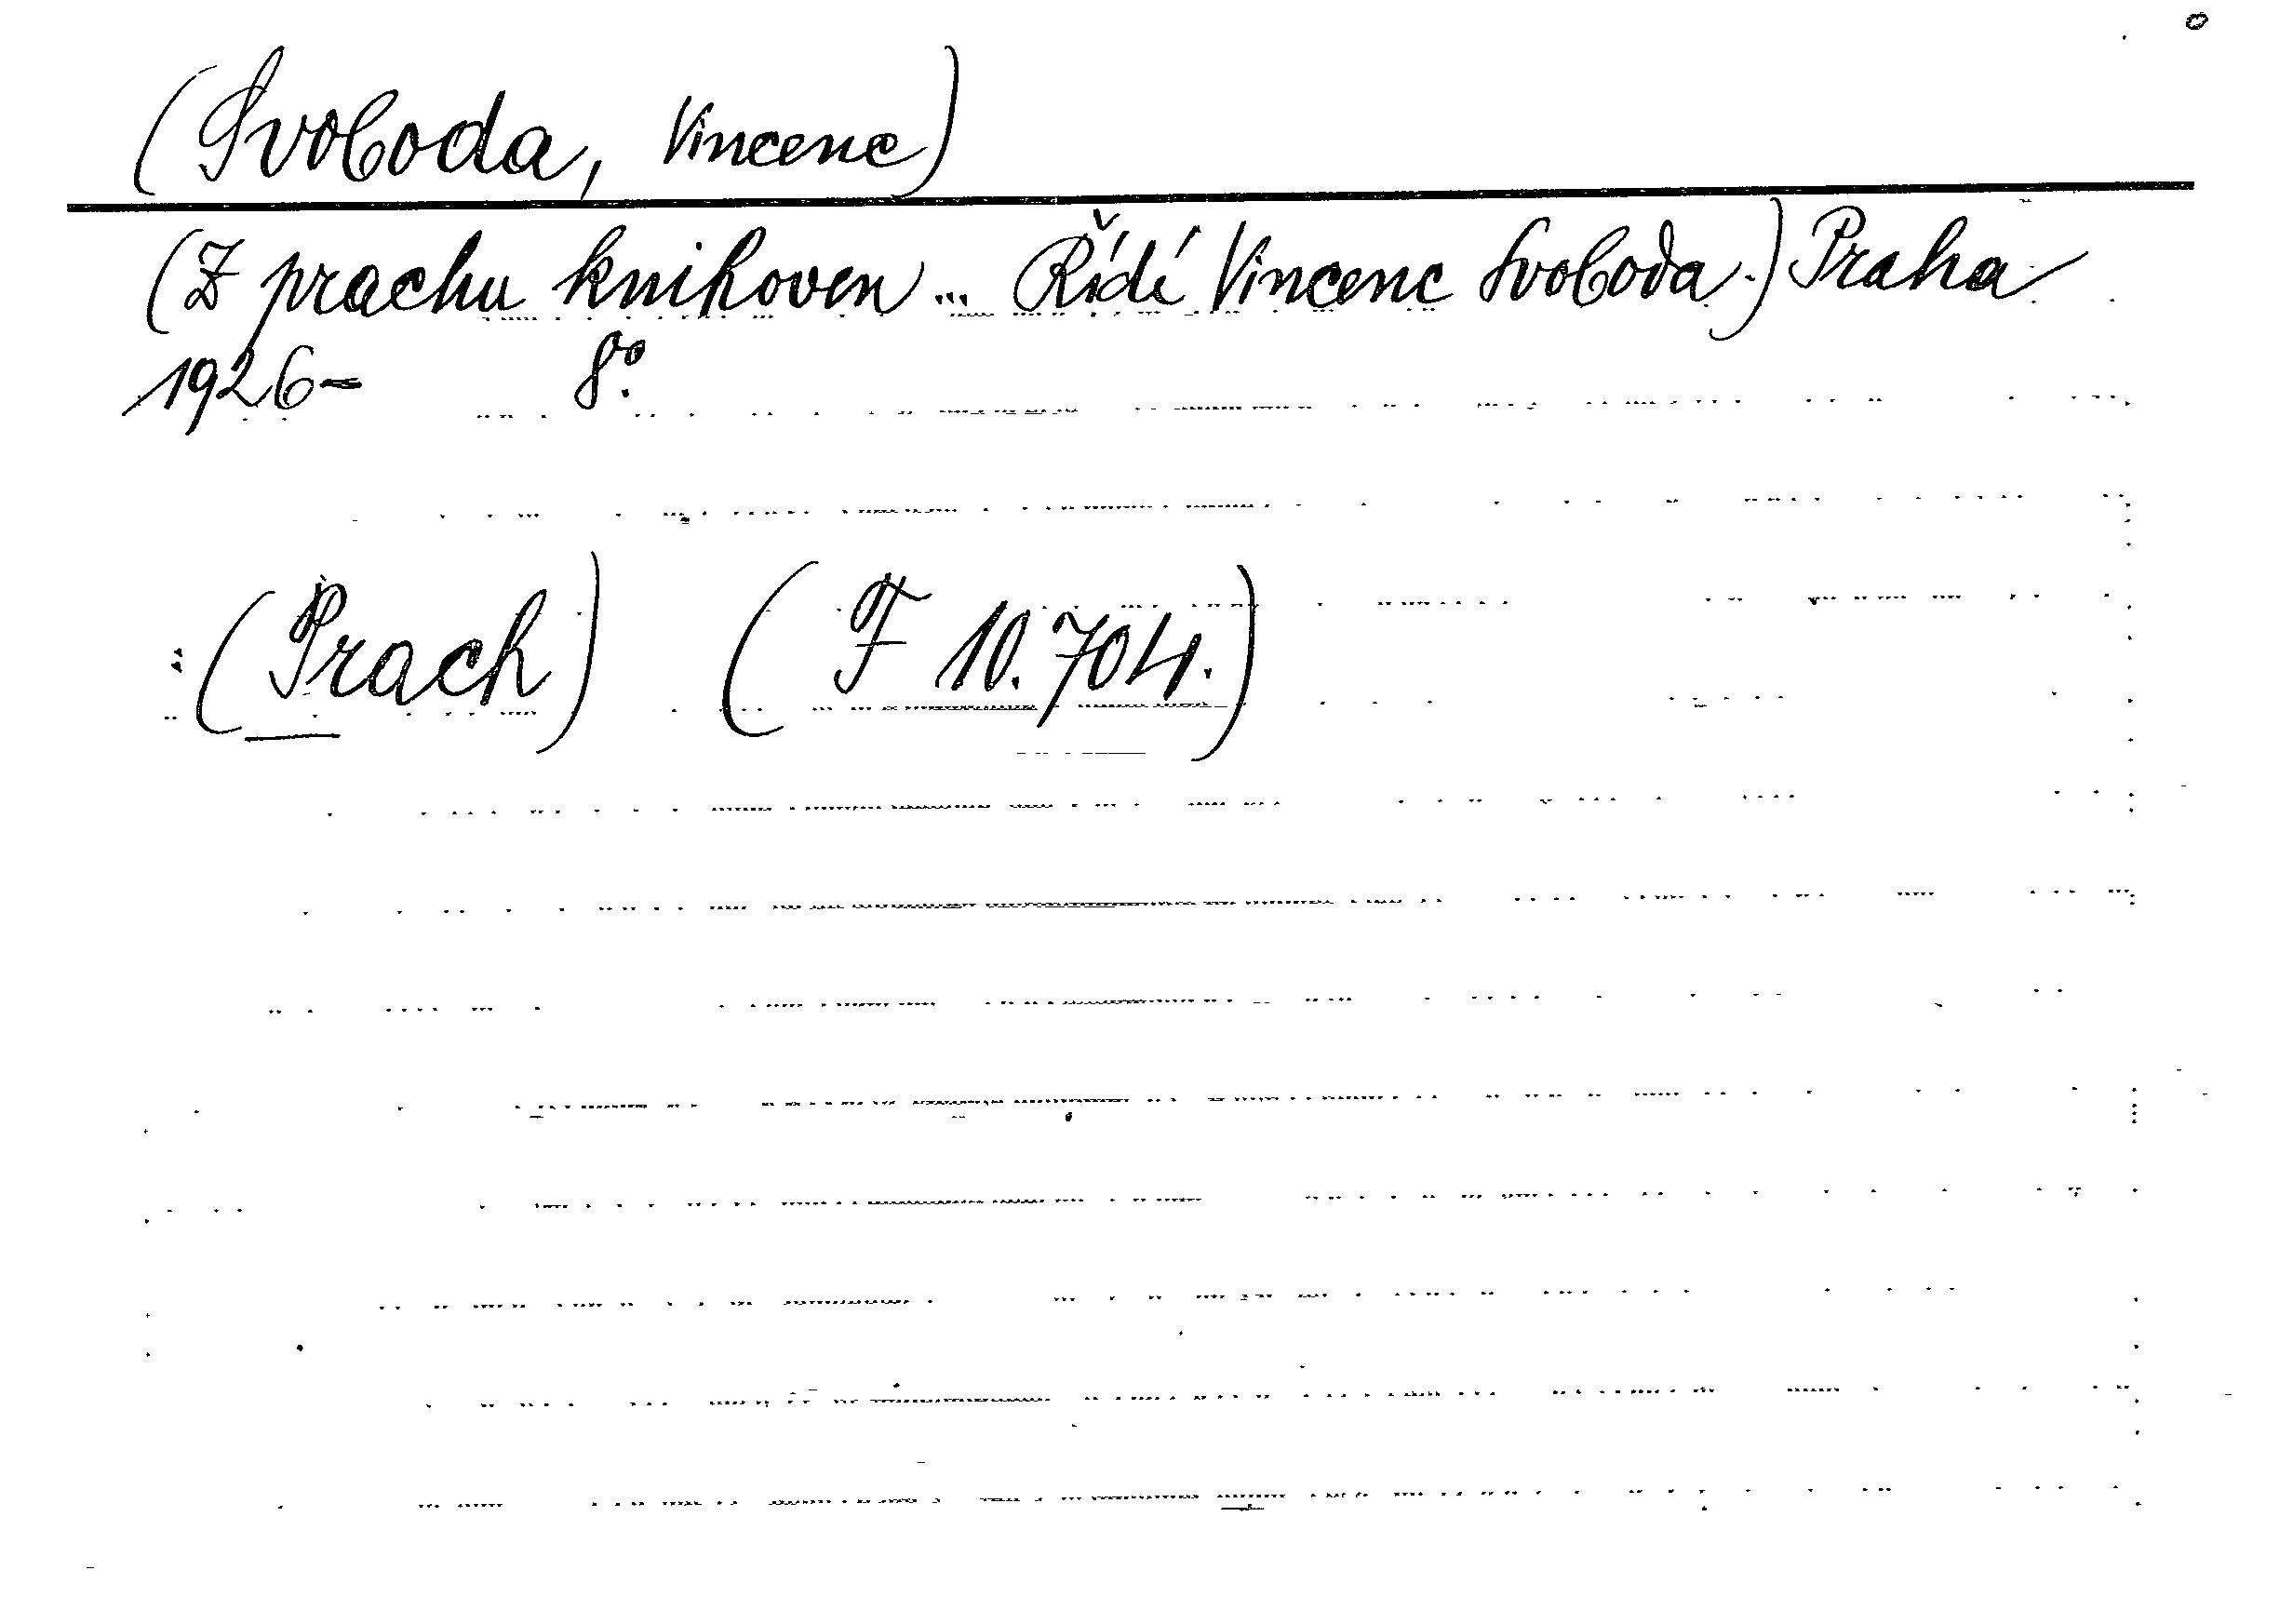 (Svoboda, Vincenc)
(Z prachu knihoven ... Řídí Vincenc Svoboda.) Praha
1926- 8°.
: (Prach) (F 10.704.)